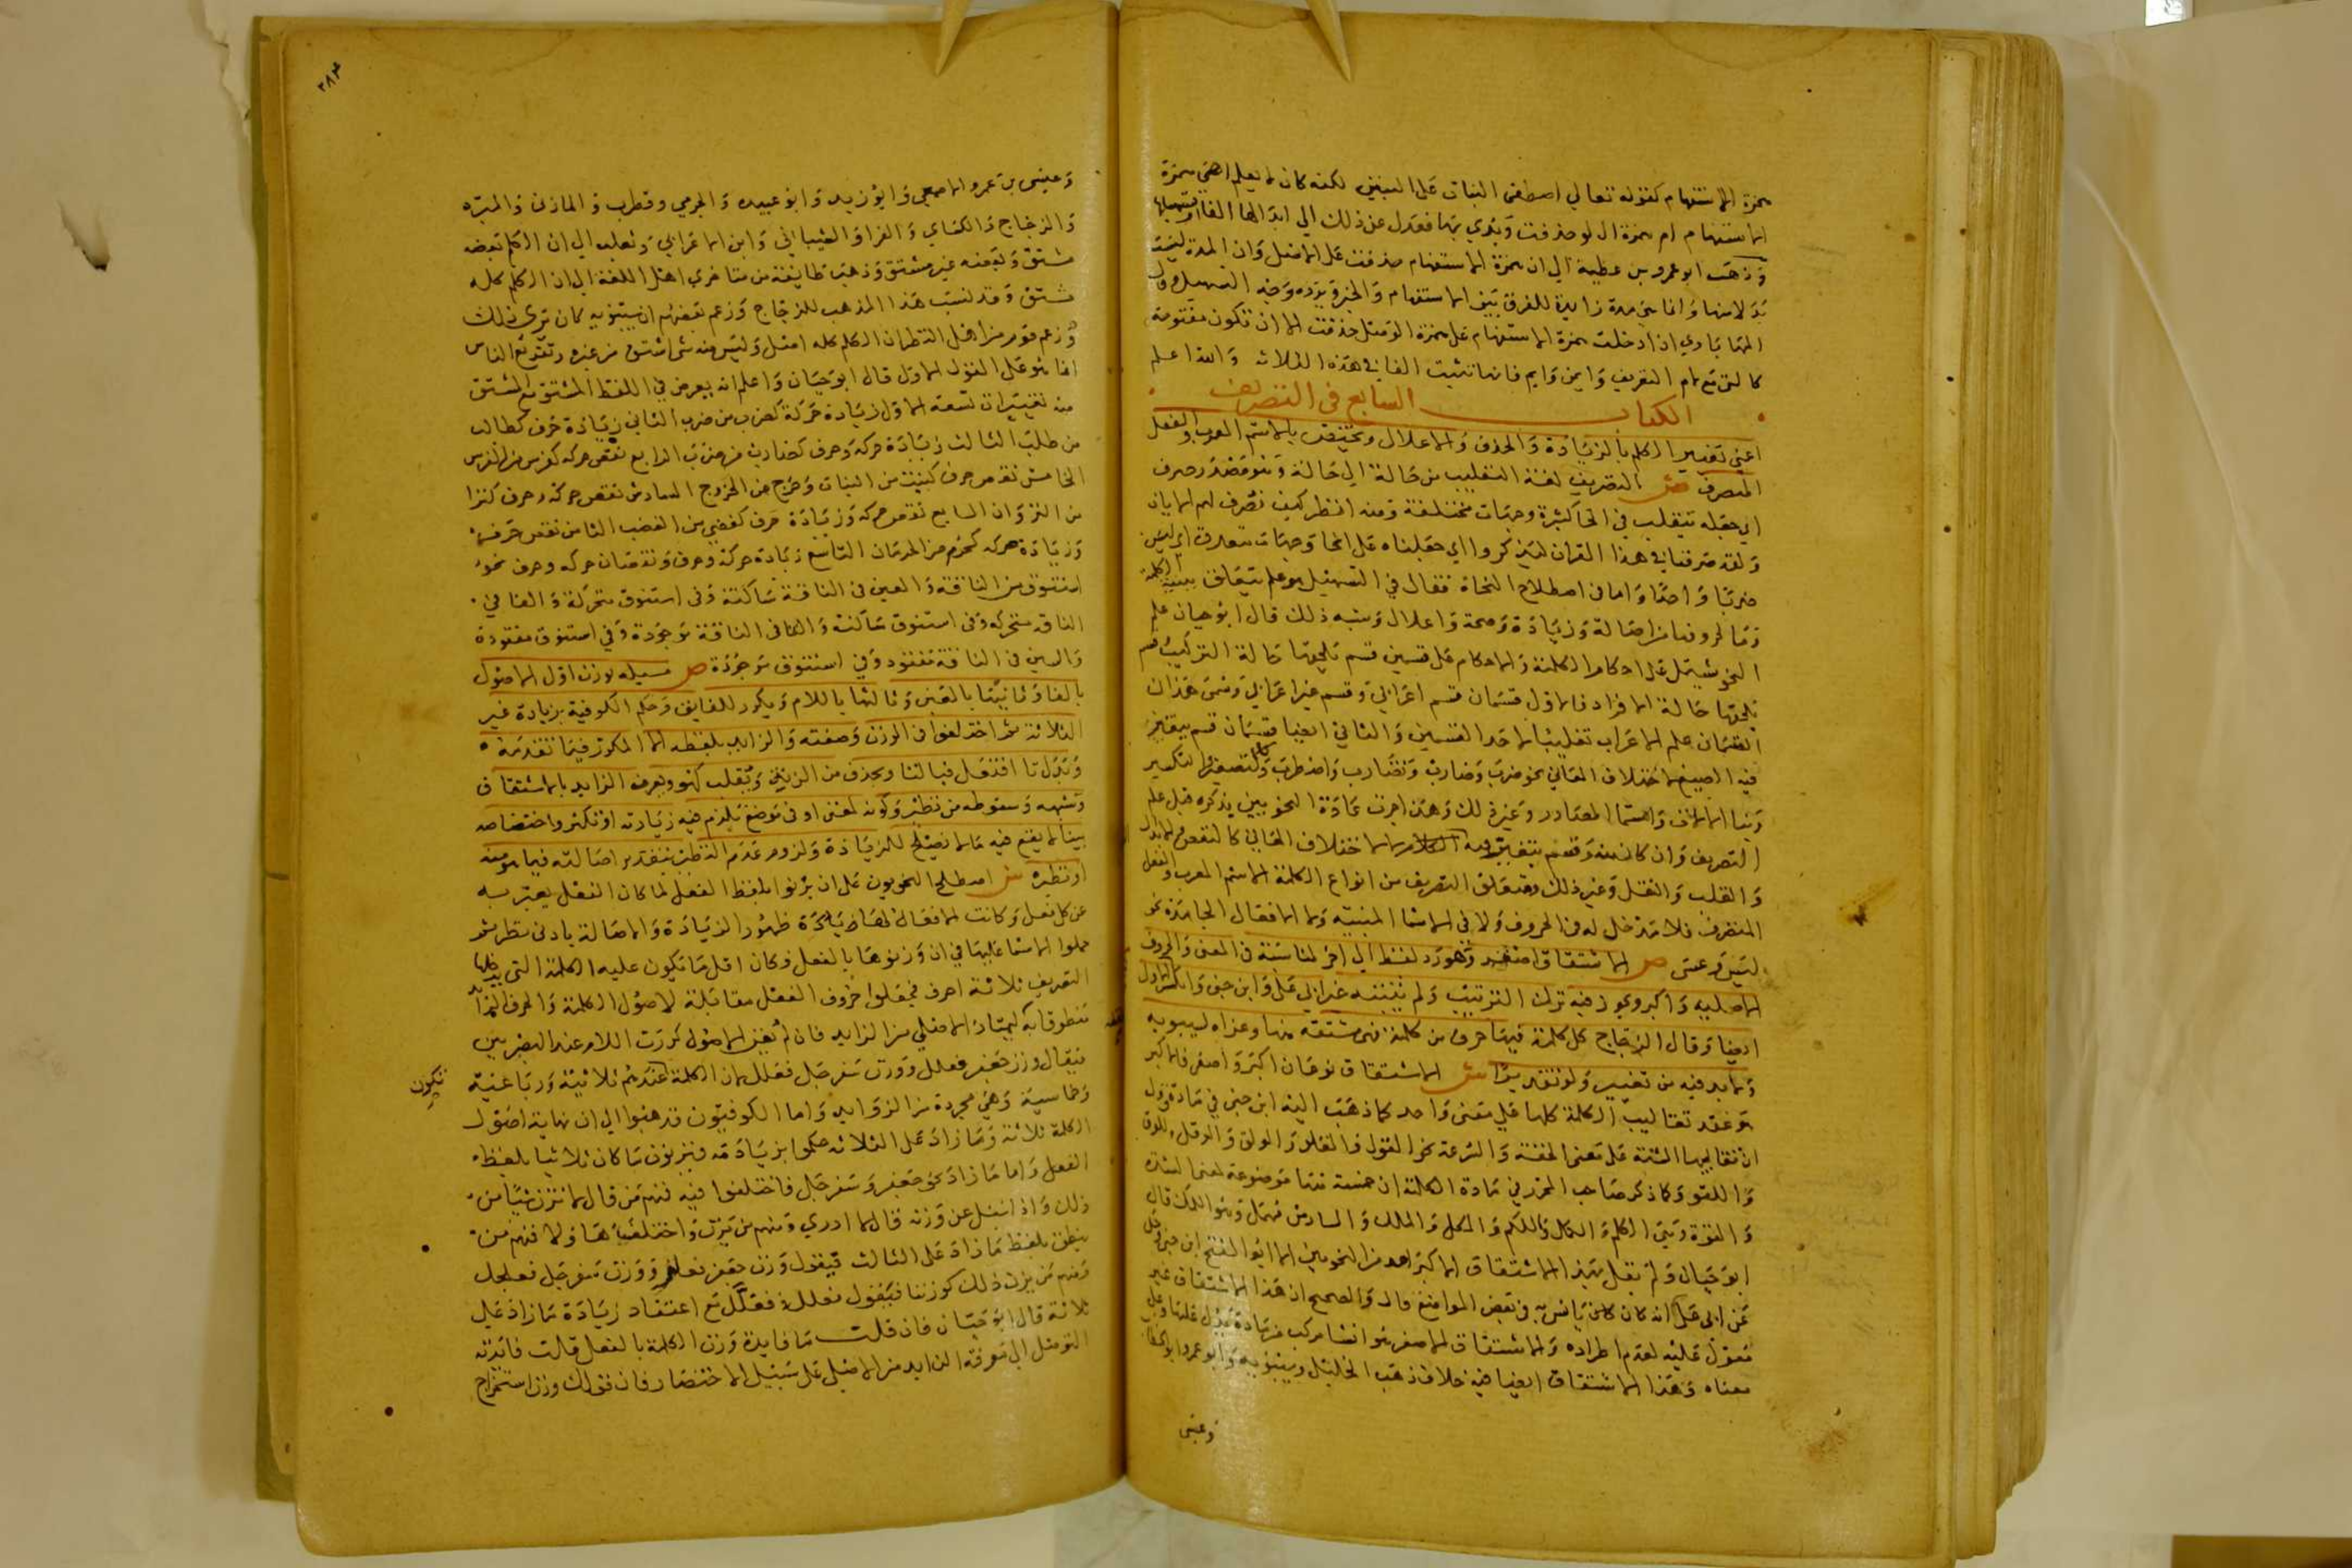 همزة الاستفهام كقوله تعالي اصطفى البنات على البنين لكنه كان لا يعلم اهي همزة
استفهام ام همزة ال لو حذفت وبدي بها فعدل عن ذلك الي ابدالها الفا او تسهيلها
وذهب ابو عمرو بن عطية الي ان همزة الاستفهام حذفت على الاصل وان المدة ليست
بدلا منها وانما هي مدة زايدة للفرق بين الاستفهام والخبر ويرده وجه التسهيل وقال
المهاباذي اذا دخلت همزة الاستفهام على همزة الوصل حذفت الا ان تكون مفتوحة
كالتي مع لام التعريف وايمن وايم فانها تثبت الفا في هذه الثلاثه والله اعلم
الكتاب السابع في التصريف
اعني تغيير الكلم بالزيادة والحذف والاعلال ويختص بالاسم المعرب والفعل
المتصرف ش التصريف لغة التقليب من حالة الي حالة وهو مصدر صرف
اي جعله يتقلب في انحا كثيرة وجهات مختلفة ومنه انظر كيف نصرف لهم الايات
ولقد صرفنا في هذا القران ليذكروا اي جعلناه على انحا وجهات متعددة اي ليس
ضربا واحدا واما في اصطلاح النحاة فقال في التسهيل هو علم يتعلق ببنية الكلمة
وما لحروفها من اصالة وزيادة وصحة واعلال وشبه ذلك قال ابو حيان علم
النحو يشتمل على احكام الكلمة والاحكام على قسمين قسم تلحقها حالة التركيب وقسم
تلحقها حالة الافراد فالاول قسمان قسم اعرابي وقسم غير اعرابي وسمى هذان
القسمان علم الاعراب تغليبا لاحد القسمين والثاني ايضا قسمان قسم تتغير
فيه الصيغ لاختلاف المعاني نحو ضرب وضارب وتضارب واضطرب وكالتصغير والتكسير
وبنا الالات واسما المصادر وغير ذلك وهذا جرت عادة النحويين بذكره قبل علم
التصريف وان كان منه وقسم تتغير فيه الكلمة لا لاختلاف المعاني كالنقص والابدال
والقلب والنقل وغير ذلك ومتعلق التصريف من انواع الكلمة الاسم المعرب والفعل
المتصرف فلا مدخل له في الحروف ولا في الاسما المبنيه ولا الافعال الجامدة نحو
ليس وعسى ص الاشتقاق اصغر وهو رد لفظ الي اخر لمناسبة في المعنى والحروف
الاصليه واكبر ويجوز فيه ترك الترتيب ولم يثبته غير ابي علي وابن جني وانكر الاول
ايضا وقال الزجاج كل كلمة فيها حرف من كلمة فهي مشتقه منها وعزاه لسيبويه
ولا بد فيه من تغيير ولو تقديرا ش الاشتقاق نوعان اكبر واصغر فالاكبر
هو عقد تقاليب الكلمة كلها علي معنى واحد كما ذهب اليه ابن جني في مادة قول
ان تقاليبها الستة على معنى الخفة والسرعة نحو القول والقلو والولق والوقل واللوق
واللقو وكما ذكر صاحب المحرر في مادة الكلمة ان خمسة منها موضوعة لمعنى الشدة
والقوة وهي الكلم والكمل واللكم والمكل والملك والسادس مهمل وهو اللمك قال
ابو حيان ولم يقل بهذا الاشتقاق الاكبر احد من النحويين الا ابو الفتح ابن جني وحكي
عن ابي علي انه كان يانس به في بعض المواضع قال والصحيح ان هذا الاشتقاق غير
معول عليه لعدم اطراده والاشتقاق الاصغر هو انشا مركب من مادة يدل عليها وعلى
معناه وهذا الاشتقاق ايضا فيه خلاف ذهب الخليل وسيبويه وابو عمرو وابو الخطاب
وعيسى
٣٨٣
وعيسى بن عمرو والاصمعي وابو زيد وابو عبيده والجرمي وقطرب والمازني والمبرد
والزجاج والكساي والفرا والشيباني وابن الاعرابي وثعلب الي ان الكلم بعضه
مشتق وبعضه غير مشتق وذهب طايفة من متاخري اهل اللغة الي ان الكلم كله
مشتق وقد نسب هذا المذهب للزجاج وزعم بعضهم ان سيبويه كان يري ذلك
وزعم قوم من اهل النظر ان الكلم كله اصل وليس منه شي اشتق من غيره
انما هو على القول الاول قال ابو حيان واعلم انه يعرض في اللفظ المشتق مع المشتق
منه تغييرات تسعة الاول زيادة حركة كضرب من ضرب الثاني زيادة حرف كطالب
من طلب الثالث زيادة حركة وحرف كضارب من ضرب الرابع نقص حركه كفرس من الفرس
الخامس نقص حرف كنبت من النبات وخرج من الخروج السادس نقص حركة وحرف كنزا
من النزوان السابع نقص حركه وزيادة حرف كغضبي من الغضب الثامن نقص حرف
وزيادة حركه كحرم من الحرمان التاسع زيادة حركة وحرف ونقصان حركه وحرف نحو
استنوق من الناقة والعين في الناقة ساكنة وفي استنوق متحركة والفا في
الناقه متحركه وفي استنوق ساكنة والتا في الناقة موجودة وفي استنوق مفقودة
والسين في الناقة مفقود وفي استنوق موجودة ص مسيله يوزن اول الاصول
بالفا وثانيها بالعين وثالثها باللام ويكرر للفايق وحكم الكوفية بزيادة غير
الثلاثة ثم اختلفوا في الوزن وصفته والزايد بلفظه الا المكرر فيما تقدمه
وبدل تا افتعل فبالتا ويحذف من الزنة ويقلب كهو ويعرف الزايد بالاشتقاق
وشبهه وسقوطه من نظير وكونه لمعنى او في موضع يلزم فيه زيادته او تكثر واختصاصه
ببنا لا يقع فيه ما لا يصلح للزيادة ولزوم عدم النظير بتقدير اصالته فيما هو منه
او نظيره ش اصطلح النحويون على ان يزنوا بلفظ الفعل لما كان الفعل يعبر به
عن كل فعل وكانت الافعال ظاهرة ظهور الزيادة والاصالة بادنى نظر ثم
حملوا الاسما عليها في ان وزنوها بالفعل وكان اقل ما تكون عليه الكلمة التي يدخلها
التصريف ثلاثة احرف فجعلوا حروف الفعل مقابلة لاصول الكلمة والحرف الزايد
منطوقا به ليمتاز الاصلي من الزايد فان لم تفن الاصول كررت اللام عند البصريين
فيقال وزن جعفر فعلل ووزن سفرجل فعلل لان الكلمة عندهم ثلاثية ورباعية
تكون
وخماسية وهي مجردة من الزوايد واما الكوفيون فذهبوا الي ان نهاية اصول
الكلمة ثلاثة وما زاد على الثلاثه حكموا بزيادته فيزنون ما كان ثلاثيا بلفظ
الفعل واما ما زاد نحو جعفر وسفرجل فاختلفوا فيه فمنهم من قال لا نزن شيا من
ذلك واذا سئل عن وزنه قال لا ادري ومنهم من يزن واختلف هاولا فمنهم من
ينطق بلفظ ما زاد على الثالث فيقول وزن جعفر فعلر ووزن سفرجل فعلجل
ومنهم من يزن ذلك كوزننا فيقول فعلل او فعلل مع اعتقاد زيادة ما زاد علي
ثلاثة قال ابو حيان فان قلت ما فايدة وزن الكلمة بالفعل قلت فائدته
التوصل الي معرفة الزايد من الاصلي على سبيل الاختصار فان قولك وزن استخراج